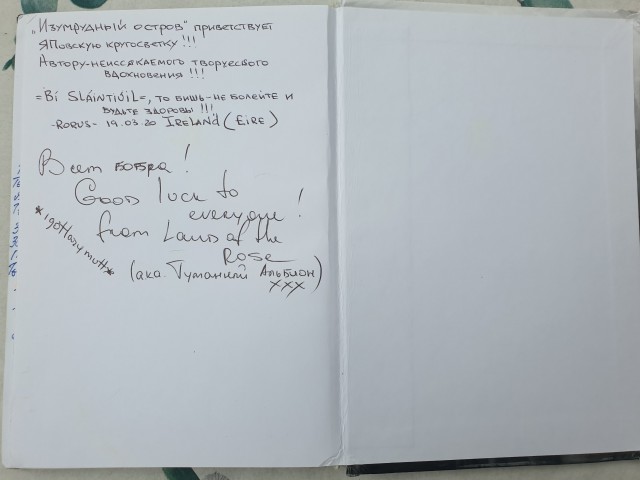 „Изумрудный остров" приветствует
ЯПовскую кругосветку !!!
Автору-неиссякаемого творческого
вдохновения !!!
=Bí SláintiúiL=, то бишь-не болейте и
будьте здоровы !!!
-RORUS- 19.03.20 IRELAND (EIRE)
Всем бобра !
Good luck to
everyone !
from Land of the
Rose
(aka. Туманный Альбион)
xxx